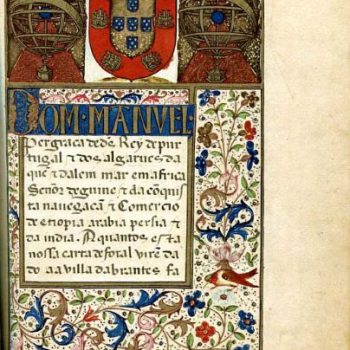 DOM · MANVEL ·
Per graça de ds̃ Rey de pur
tugal ⁊ dos algarues da
quē ⁊ dalem mar em africa
Señor de guine ⁊ da cōquis
ta nauegacā ⁊ Comercio
de etiopia arabia persia ⁊
da india. A quantos esta
nossa carta de foral virē da
do aa villa dabrantes fa